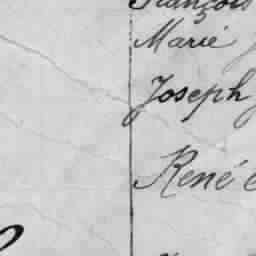 François
Marié
Joseph
René